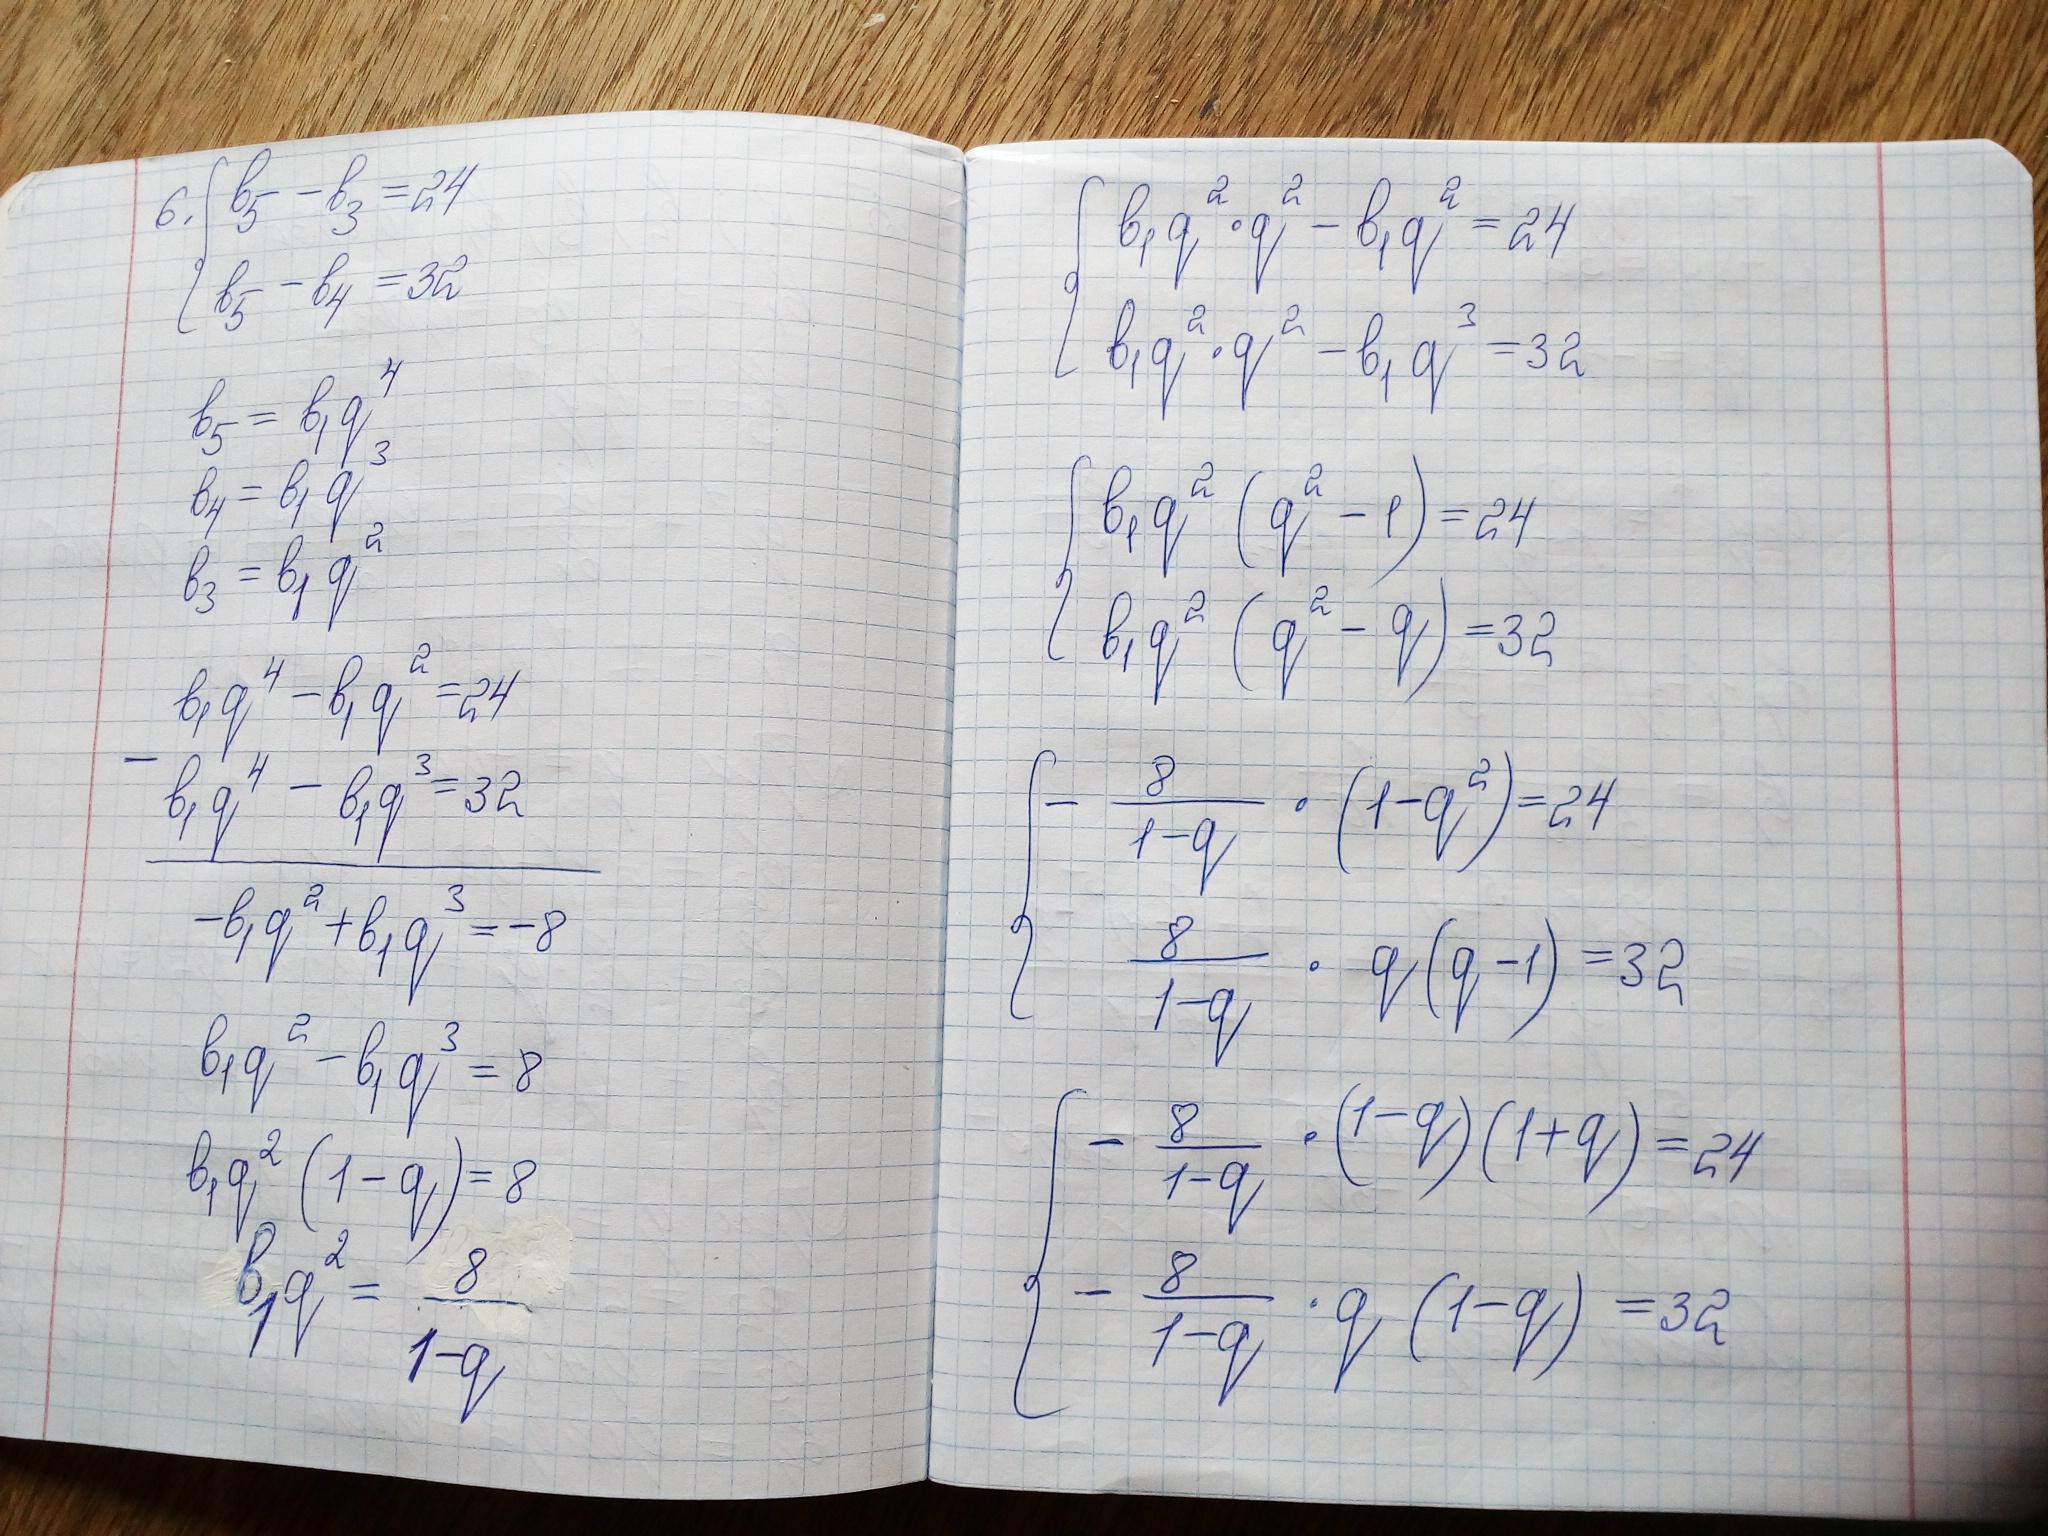 6. { b₅ − b₃ = 24
b₅ − b₄ = 32
b₅ = b₁q⁴
b₄ = b₁q³
b₃ = b₁q²
b₁q⁴ − b₁q² = 24
− b₁q⁴ − b₁q³ = 32
−b₁q² + b₁q³ = −8
b₁q² − b₁q³ = 8
b₁q² (1 − q) = 8
b₁q² = 8/(1−q)
{ b₁q² · q² − b₁q² = 24
b₁q² · q² − b₁q³ = 32
{ b₁q² (q² − 1) = 24
b₁q² (q² − q) = 32
{ − 8/(1−q) · (1−q²) = 24
8/(1−q) · q (q−1) = 32
{ − 8/(1−q) · (1−q)(1+q) = 24
− 8/(1−q) · q (1−q) = 32